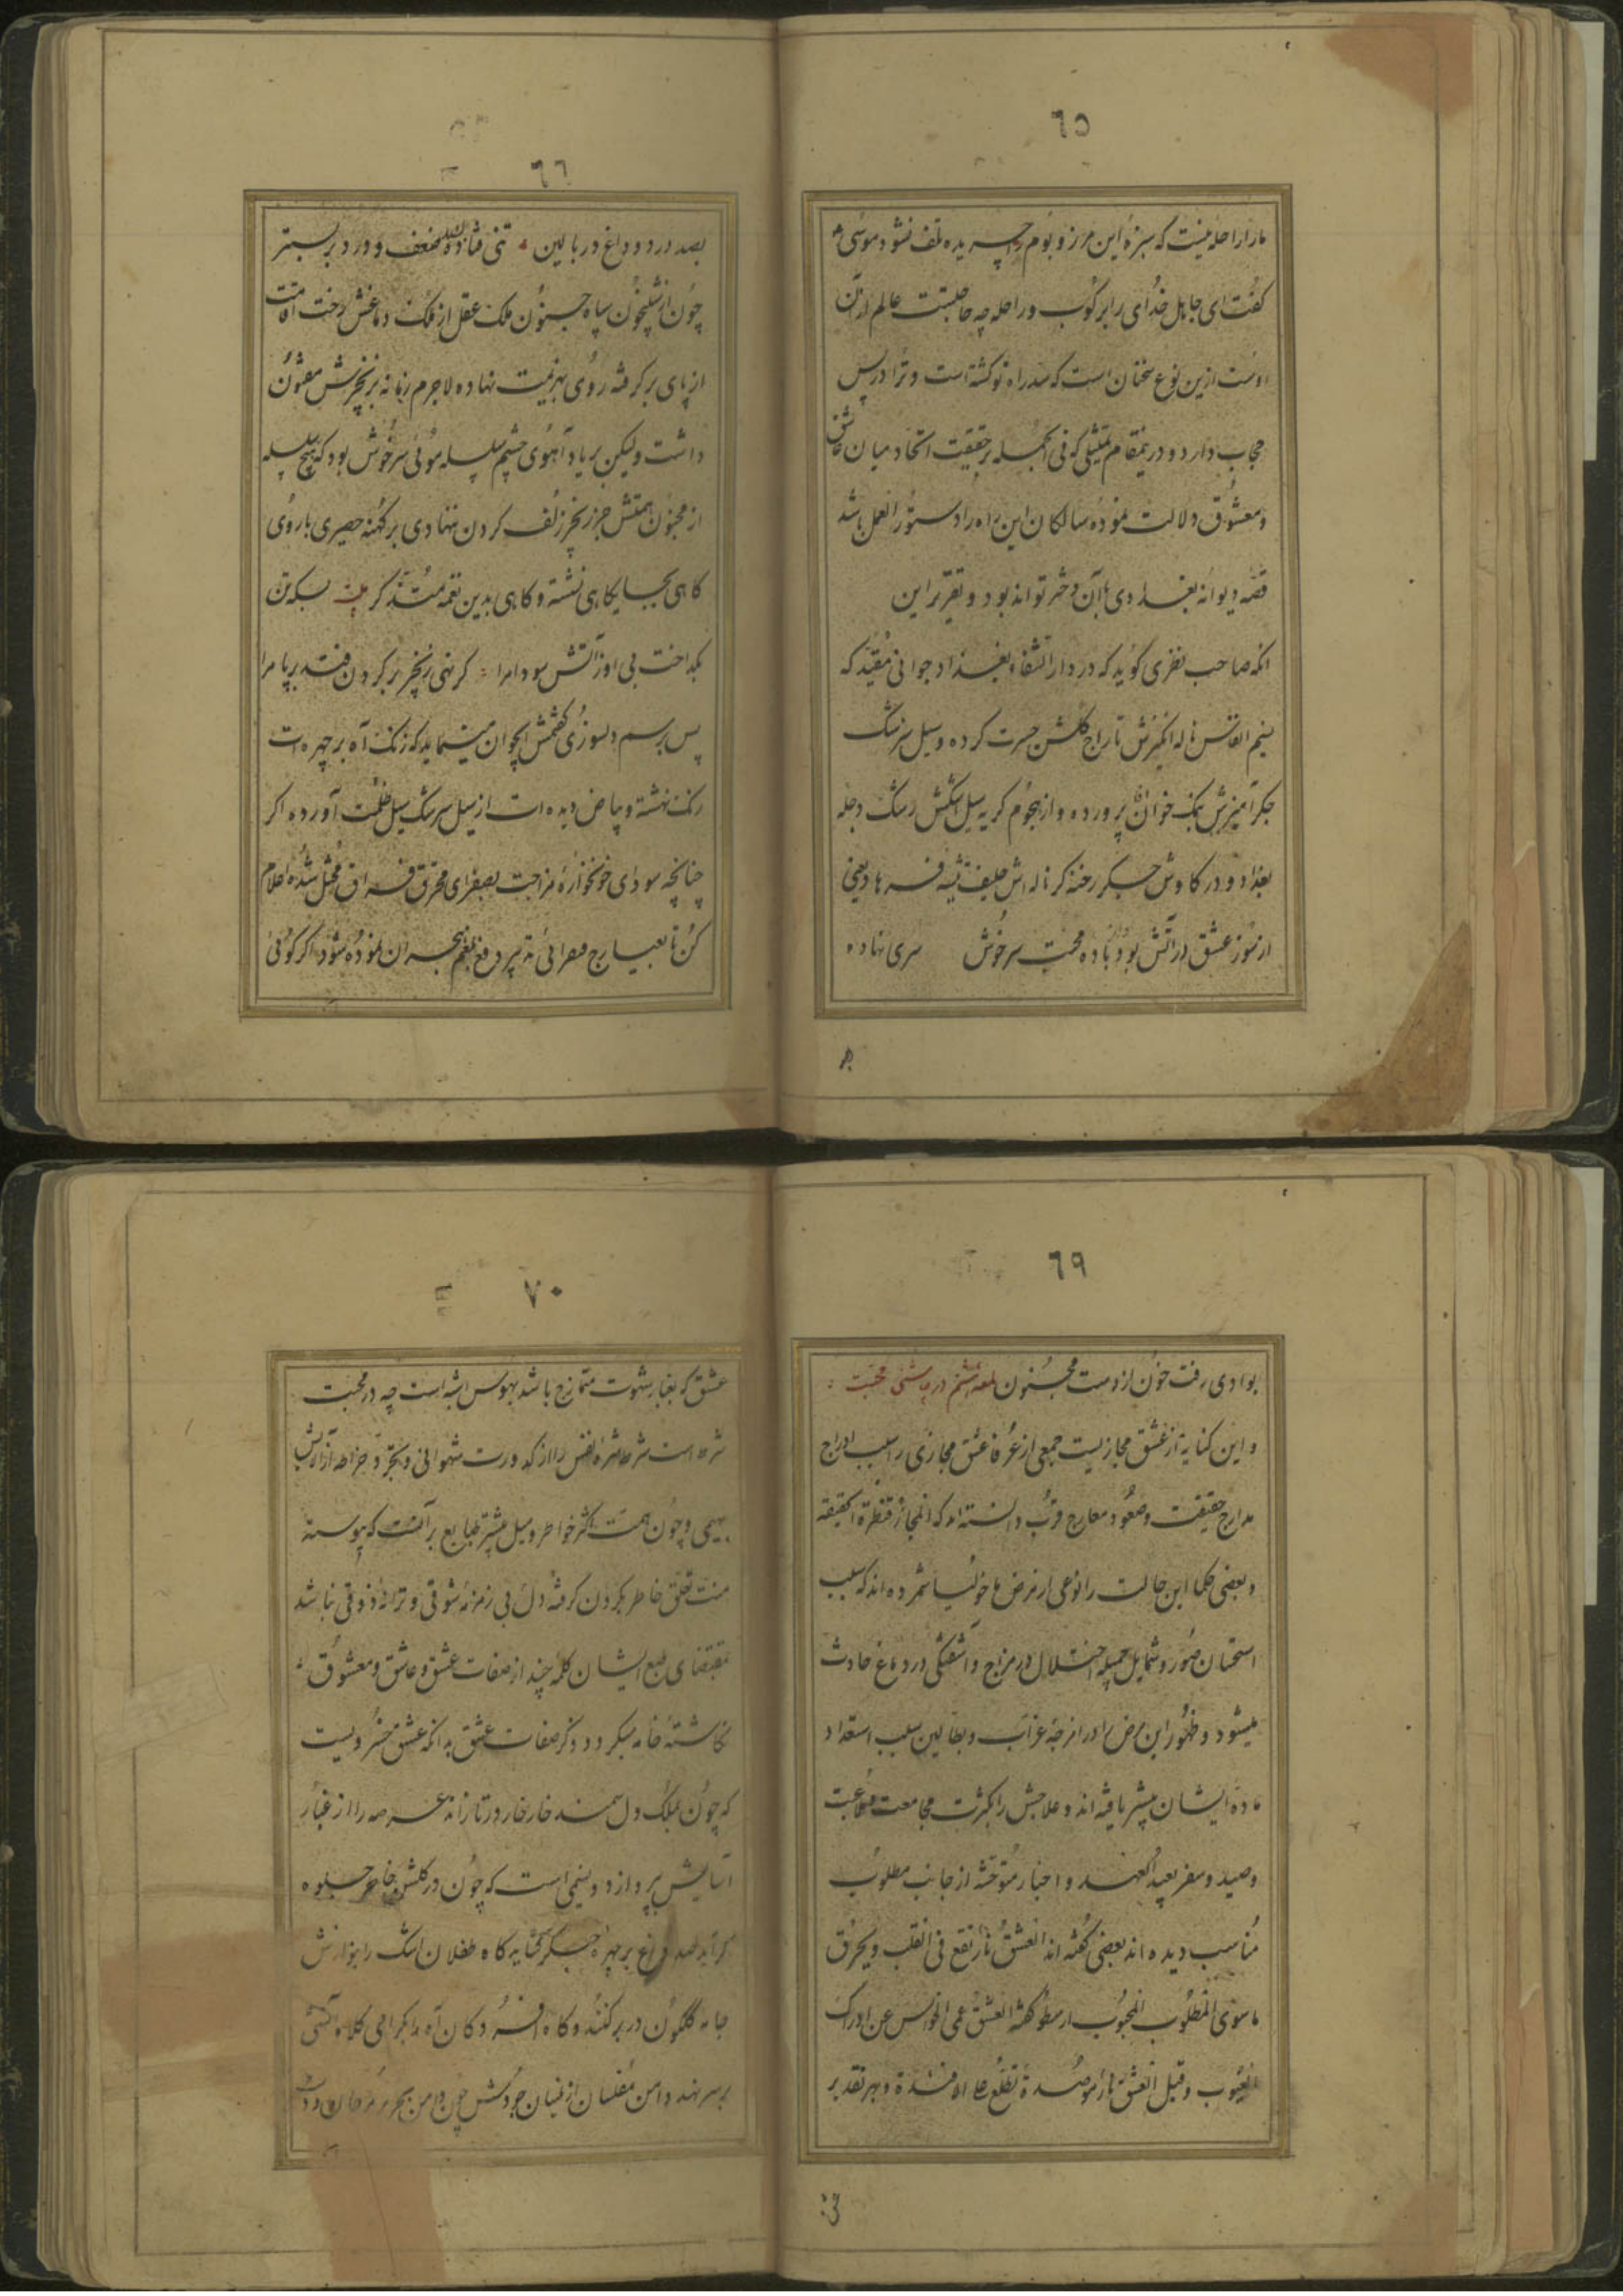 ٦٥
ما را راحله نیست که سبزه این مرز و بوم چریده تلف نشود موسی
گفت ای جاهل خدای را برکوب و راحله چه حاجتست عالم از آن
اوست ازین نوع سخنان است که سد راه تو گشته است و ترا در پس
حجاب دارد و درینمقام تمثیلی که فی الجمله بر حقیقت اتحاد میان عاشق
و معشوق دلالت نموده سالکان این راه را دستور العمل باشد
قصه دیوانه بغدادی با آن دختر تواند بود و تقریر این
انکه صاحب نظری کوید که در دار الشفاء بغداد جوانی مقید که
نسیم انفاس ناله انگیزش تاراج گلشن حسرت کرده و سیل سرشک
جگر آمیزش نمک خوان پرورده و از هجوم کریه سیل اشکش رشک دجله
بغداد و در کاوش جگر رخنه کر ناله اش حلیف تیشه فرهاد یعنی
از سوز عشق در آتش بود و باده محبت سرخوش سری نهاده
٦٦
بصد درد و داغ در بالین تنی فتاده ضعف و درد بر بستر
چون از شبیخون سپاه جنون ملک عقل از ملک دماغش رخت اقامت
از پای برکرفته روی بهزیمت نهاده لاجرم زمانه بزنجیرش مفتون
داشت ولیکن بر یاد آهوی چشم سلسله موئی سرخوش بود که هیچ سلسله
از مجنون همتش جز زنجیر زلف کردن ننهادی بر کهنه حصیری با روی
کاهی بجایگاهی نشسته و کاهی بدین نغمه متذکر بیت بسکه تن
بکداخت بی او ز آتش سودا مرا کر نهی زنجیر بر کردن فتد بر پا مرا
پس برسم دلسوزی گفتمش ایجوان مینماید که زنک آه بر چهره ات
رنک نهشته و بیاض دیده ات از سیل سرشک سیل ظلمت آورده اکر
چنانچه سودای خونخواره مزاجت بصفرای محرق فراق مختل شده اعلام
کن تا بعیارج صفرائی تدبیر دفع بلغم هجران نموده شود اکر کوئی
٦٩
بوادی رفت خون از دست مجنون لمعه هشتم در چاشنی محبت
و این کنایه از عشق مجازیست جمعی از عرفا عشق مجازی را سبب ادراج
مدارج حقیقت و صعود معارج قرب دانسته اند که المجاز قنطرة الحقیقه
و بعضی حکما این حالت را نوعی از مرض ماخولیا شمرده اند که سبب
استحسان صور و شمایل جمیله اختلال در مزاج و آشفتگی در دماغ حادث
میشود و ظهور این مرض را در امزجه عزاب و بطالین سبب استعداد
ماده ایشان بیشتر یافته اند و علاجش را بکثرت مجامعت و ملاعبت
و صید و سفر بعید العهد و اخبار متوحشه از جانب مطلوب
مناسب دیده اند بعضی گفته اند العشق نار تقع فی القلب و یحرق
ما سوی المطلوب المحبوب ارسطو گفته العشق عمی الحواس عن ادراک
العیوب و قیل العشق نار موصدة تطلع علی الافئدة و بهر تقدیر
٧٠
عشق که بغبار شهوت ممتزج باشد بهوس اشبه است چه در محبت
شره است شرط تنزه نفس را از کدورت شهوانی و تجرد خاطر از آلایش
بهیمی و چون همت اکثر خواطر و میل بیشتر طبایع بر آنست که پیوسته
منت تعلق خاطر بکردن کرفته دل بی زمزمه شوقی و ترانه ذوقی نباشد
بمقتضای طبع ایشان کلمه چند از صفات عشق و عاشق و معشوق
نکاشته خامه میکردد ذکر صفات عشق بدانکه عشق خسرویست
که چون بملک دل سمند خارخار در تازاند عرصه را از غبار
آسایش بپردازد و نسیمی است که چون در گلشن خاطر جلوه
کر آید صد داغ بر چهره جگر گشاید کاه طفلان اشک را بنوازش
جامه گلگون در بر کند و کاه افسردکان آه را بگرامی کلاه آتشی
بر سر نهد دامن مفلسان از نیسان جودش چون دامن بحر پر مرجان